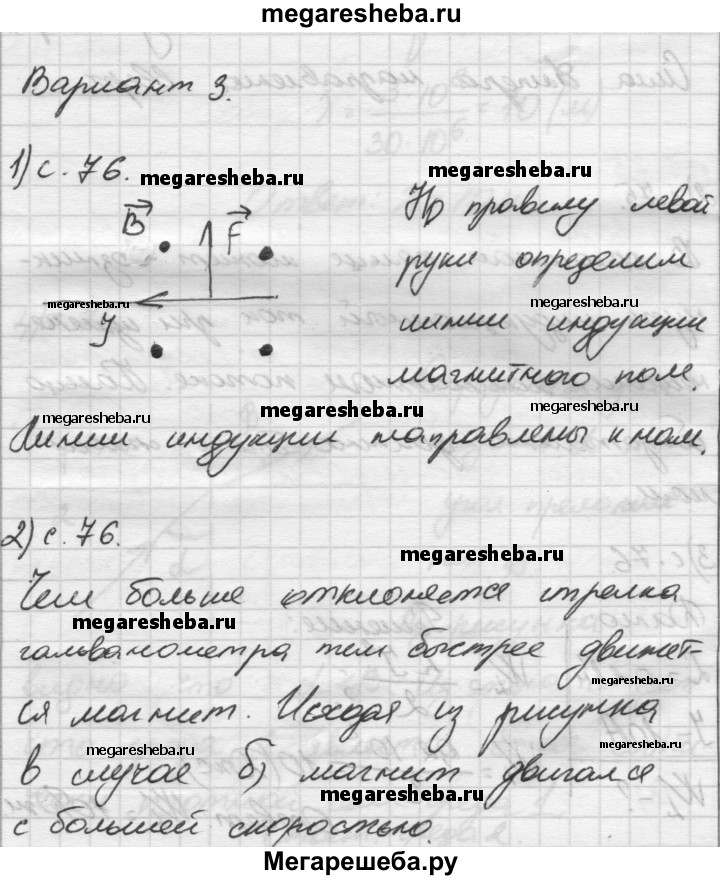 megaresheba.ru
Вариант 3.
1) с. 76.
megaresheba.ru
megaresheba.ru
B
F
J
megaresheba.ru
По правилу левой
руки определим
megaresheba.ru
линии индукции
магнитного поля.
megaresheba.ru
megaresheba.ru
megaresheba.ru
Линии индукции направлены к нам.
2) с. 76.
megaresheba.ru
Чем больше отклоняется стрелка
megaresheba.ru
гальванометра тем быстрее движет-
megaresheba.ru
ся магнит. Исходя из рисунка
megaresheba.ru
megaresheba.ru
в случае б) магнит двигался
megaresheba.ru
с большей скоростью.
Мегарешеба.ру